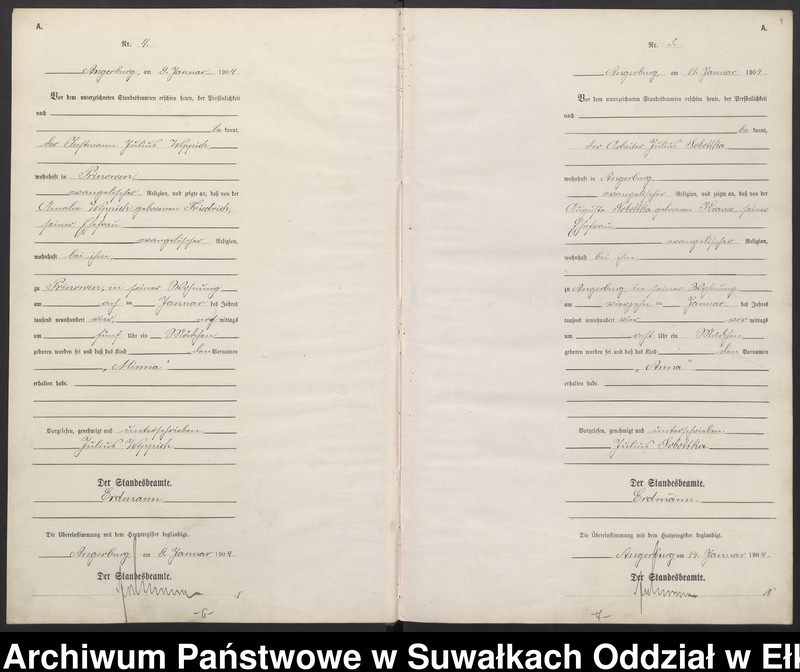 A.
Nr. 4.
Angerburg, am 9. Januar 1904.
Vor dem unterzeichneten Standesbeamten erschien heute, der Persönlichkeit
nach
be kannt,
der Julius Wippich,
wohnhaft in Prinowen,
evangelischer Religion, und zeigte an, daß von der
Amalie Wippich geborenen Friedrich,
seiner Ehefrau
evangelischer Religion,
wohnhaft bei ihm
zu Prinowen, in seiner Wohnung
am ten Januar des Jahres
tausend neunhundert vier mittags
um fünf Uhr ein Mädchen
geboren worden sei und daß das Kind den Vornamen
„Minna“
erhalten habe.
Vorgelesen, genehmigt und unterschrieben
Julius Wippich
Der Standesbeamte.
Erdmann
Die Übereinstimmung mit dem Hauptregister beglaubigt.
Angerburg am Januar 1904.
Der Standesbeamte.
Erdmann
-6-
A.
Nr. 5.
Angerburg am Januar 1904.
Vor dem unterzeichneten Standesbeamten erschien heute, der Persönlichkeit
nach
be kannt,
der Arbeiter Julius Sobottka
wohnhaft in Angerburg
evangelischer Religion, und zeigte an, daß von der
Auguste Sobottka geborenen seiner
Ehefrau,
evangelischer Religion,
wohnhaft bei ihm
zu Angerburg, in seiner Wohnung
am vierzehn ten Januar des Jahres
tausend neunhundert vier vor mittags
um acht Uhr ein Mädchen
geboren worden sei und daß das Kind den Vornamen
„Anna“
erhalten habe.
Vorgelesen, genehmigt und unterschrieben
Julius Sobottka
Der Standesbeamte.
Erdmann.
Die Übereinstimmung mit dem Hauptregister beglaubigt.
Angerburg am 14. Januar 1904.
Der Standesbeamte.
Erdmann
-7-
Archiwum Państwowe w Suwałkach Oddział w Eł